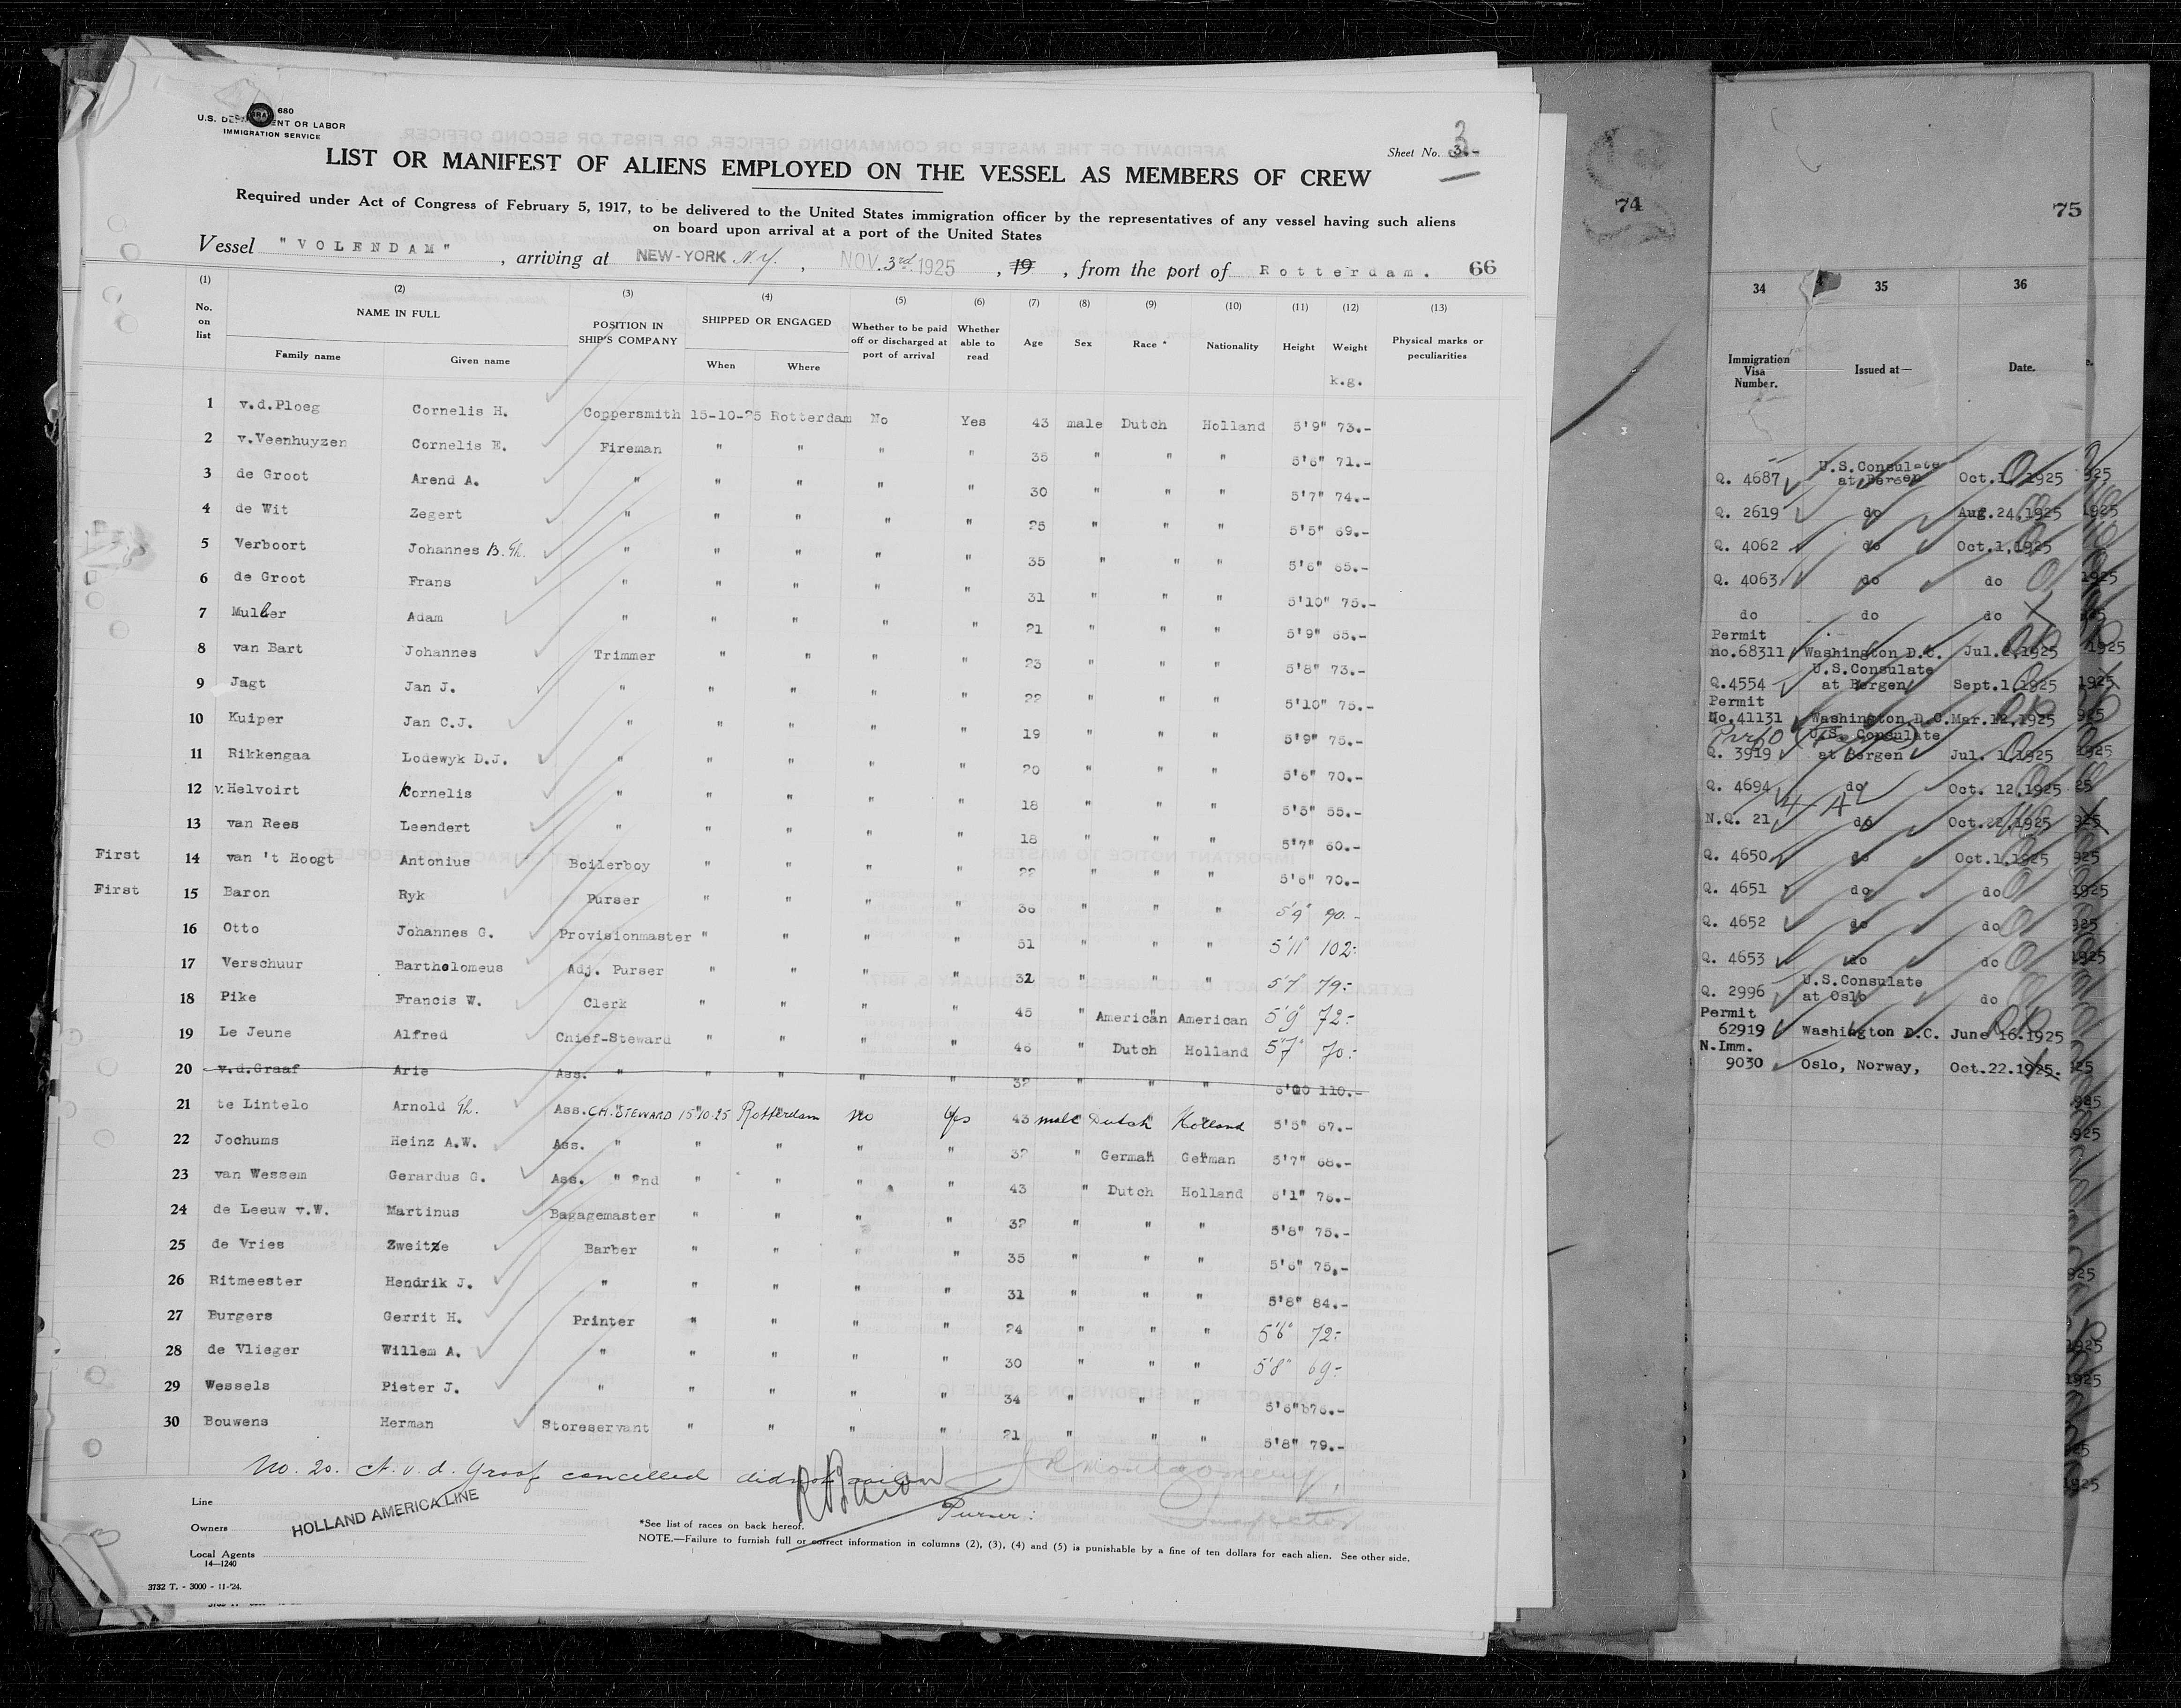 680
U.S. DEPARTMENT OR LABOR
IMMIGRATION SERVICE
3
Sheet No. 3.-
LIST OR MANIFEST OF ALIENS EMPLOYED ON THE VESSEL AS MEMBERS OF CREW
Required under Act of Congress of February 5, 1917, to be delivered to the United States immigration officer by the representatives of any vessel having such aliens
on board upon arrival at a port of the United States
Vessel "VOLENDAM", arriving at NEW-YORK N.Y., NOV. 3rd. 1925, 19, from the port of Rotterdam. 66
(1) (2) (3) (4) (5) (6) (7) (8) (9) (10) (11) (12) (13)
No. on list NAME IN FULL POSITION IN SHIP'S COMPANY SHIPPED OR ENGAGED Whether to be paid off or discharged at port of arrival Whether able to read Age Sex Race * Nationality Height Weight Physical marks or peculiarities
Family name Given name When Where k.g.
1 v.d.Ploeg Cornelis H. Coppersmith 15-10-25 Rotterdam No Yes 43 male Dutch Holland 5'9" 73.-
2 v.Veenhuyzen Cornelis E. Fireman " " " " 35 " " " 5'6" 71.-
3 de Groot Arend A. " " " " " 30 " " " 5'7" 74.-
4 de Wit Zegert " " " " " 25 " " " 5'5" 69.-
5 Verboort Johannes B. Th. " " " " " 35 " " " 5'6" 65.-
6 de Groot Frans " " " " " 31 " " " 5'10" 75.-
7 Mulder Adam " " " " " 21 " " " 5'9" 65.-
8 van Bart Johannes Trimmer " " " " 23 " " " 5'8" 73.-
9 Jagt Jan J. " " " " " 22 " " " 5'10" 75.-
10 Kuiper Jan C.J. " " " " " 19 " " " 5'9" 75.-
11 Rikkengaa Lodewyk D.J. " " " " " 20 " " " 5'6" 70.-
12 v.Helvoirt Kornelis " " " " " 18 " " " 5'5" 55.-
13 van Rees Leendert " " " " " 18 " " " 5'7" 60.-
First 14 van 't Hoogt Antonius Boilerboy " " " " 22 " " " 5'6" 70.-
First 15 Baron Ryk Purser " " " " 36 " " " 5'9" 90.-
16 Otto Johannes G. Provisionmaster " " " " 51 " " " 5'11" 102.-
17 Verschuur Bartholomeus Adj. Purser " " " " 32 " " " 5'7" 79.-
18 Pike Francis W. Clerk " " " " 45 " American American 5'9" 72.-
19 Le Jeune Alfred Chief-Steward " " " " 46 " Dutch Holland 5'7" 70.-
20 v.d.Graaf Arie Ass. " " " " " 32 " " " 6'00 110.-
21 te Lintelo Arnold Th. Ass. CH. STEWARD 15-10-25 Rotterdam no yes 43 male Dutch Holland 5'5" 67.-
22 Jochums Heinz A.W. Ass. " " " " " 32 " German German 5'7" 68.-
23 van Wessem Gerardus G. Ass. " 2nd " " " " 43 " Dutch Holland 6'1" 76.-
24 de Leeuw v.W. Martinus Bagagemaster " " " " 32 " " " 5'8" 75.-
25 de Vries Zweitze Barber " " " " 35 " " " 5'6" 75.-
26 Ritmeester Hendrik J. " " " " " 31 " " " 5'8" 84.-
27 Burgers Gerrit H. Printer " " " " 24 " " " 5'6" 72.-
28 de Vlieger Willem A. " " " " " 30 " " " 5'8" 69.-
29 Wessels Pieter J. " " " " " 34 " " " 5'6" 76.-
30 Bouwens Herman Storeservant " " " " 21 " " " 5'8" 79.-
No. 20. A. v. d. Graaf cancelled did not sail
RBaron
Purser.
JR Montgomery,
Inspector
Line
Owners HOLLAND AMERICA LINE
Local Agents
14—1240
*See list of races on back hereof.
NOTE.—Failure to furnish full or correct information in columns (2), (3), (4) and (5) is punishable by a fine of ten dollars for each alien. See other side.
3732 T. - 3000 - 11-'24.
74
75
34 35 36
Immigration Visa Number. Issued at— Date.
Q. 4687 U.S.Consulate at Bergen Oct.1, 1925
Q. 2619 do Aug.24,1925
Q. 4062 do Oct.1,1925
Q. 4063 do do
do do do
Permit no.68311 Washington D.C. Jul. 1925
Q.4554 U.S.Consulate at Bergen Sept.1,1925
Permit No.41131 Washington D.C. Mar.12,1925
Q. 3919 U.S. Consulate at Bergen Jul. 1,1925
Q. 4694 do Oct. 12,1925
N.Q. 21 do Oct.22,1925
Q. 4650 do Oct.1,1925
Q. 4651 do do
Q. 4652 do do
Q. 4653 do do
Q. 2996 U.S.Consulate at Oslo do
Permit 62919 Washington D.C. June 16.1925
N.Imm. 9030 Oslo, Norway, Oct.22.1925.